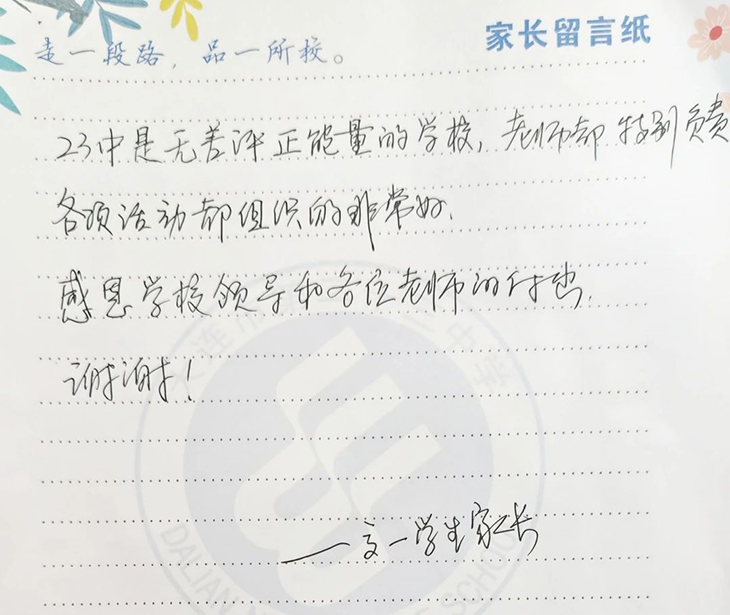 家长留言纸
走一段路，品一所校。
23中是无差评正能量的学校，老师都特别负责
各项活动都组织的非常好.
感恩学校领导和各位老师的付出.
谢谢！
——高一学生家长
大连 中学
DALIAN